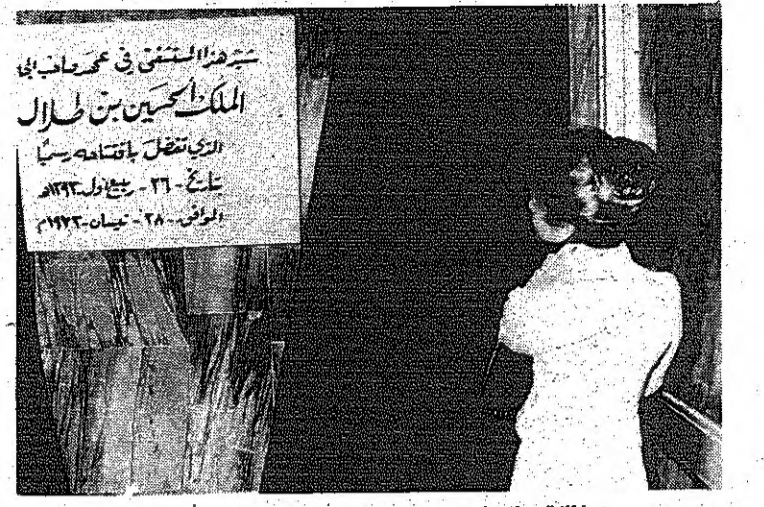 شيد هذا المستشفى في عهد صاحب الجلا
الملك الحسين بن طلال
الذي تفضل بافتتاحه رسميا
بتاريخ - ٢٦ - ربيع اول - ١٣٩٣هـ
الموافق - ٢٨ - نيسان - ١٩٧٣م